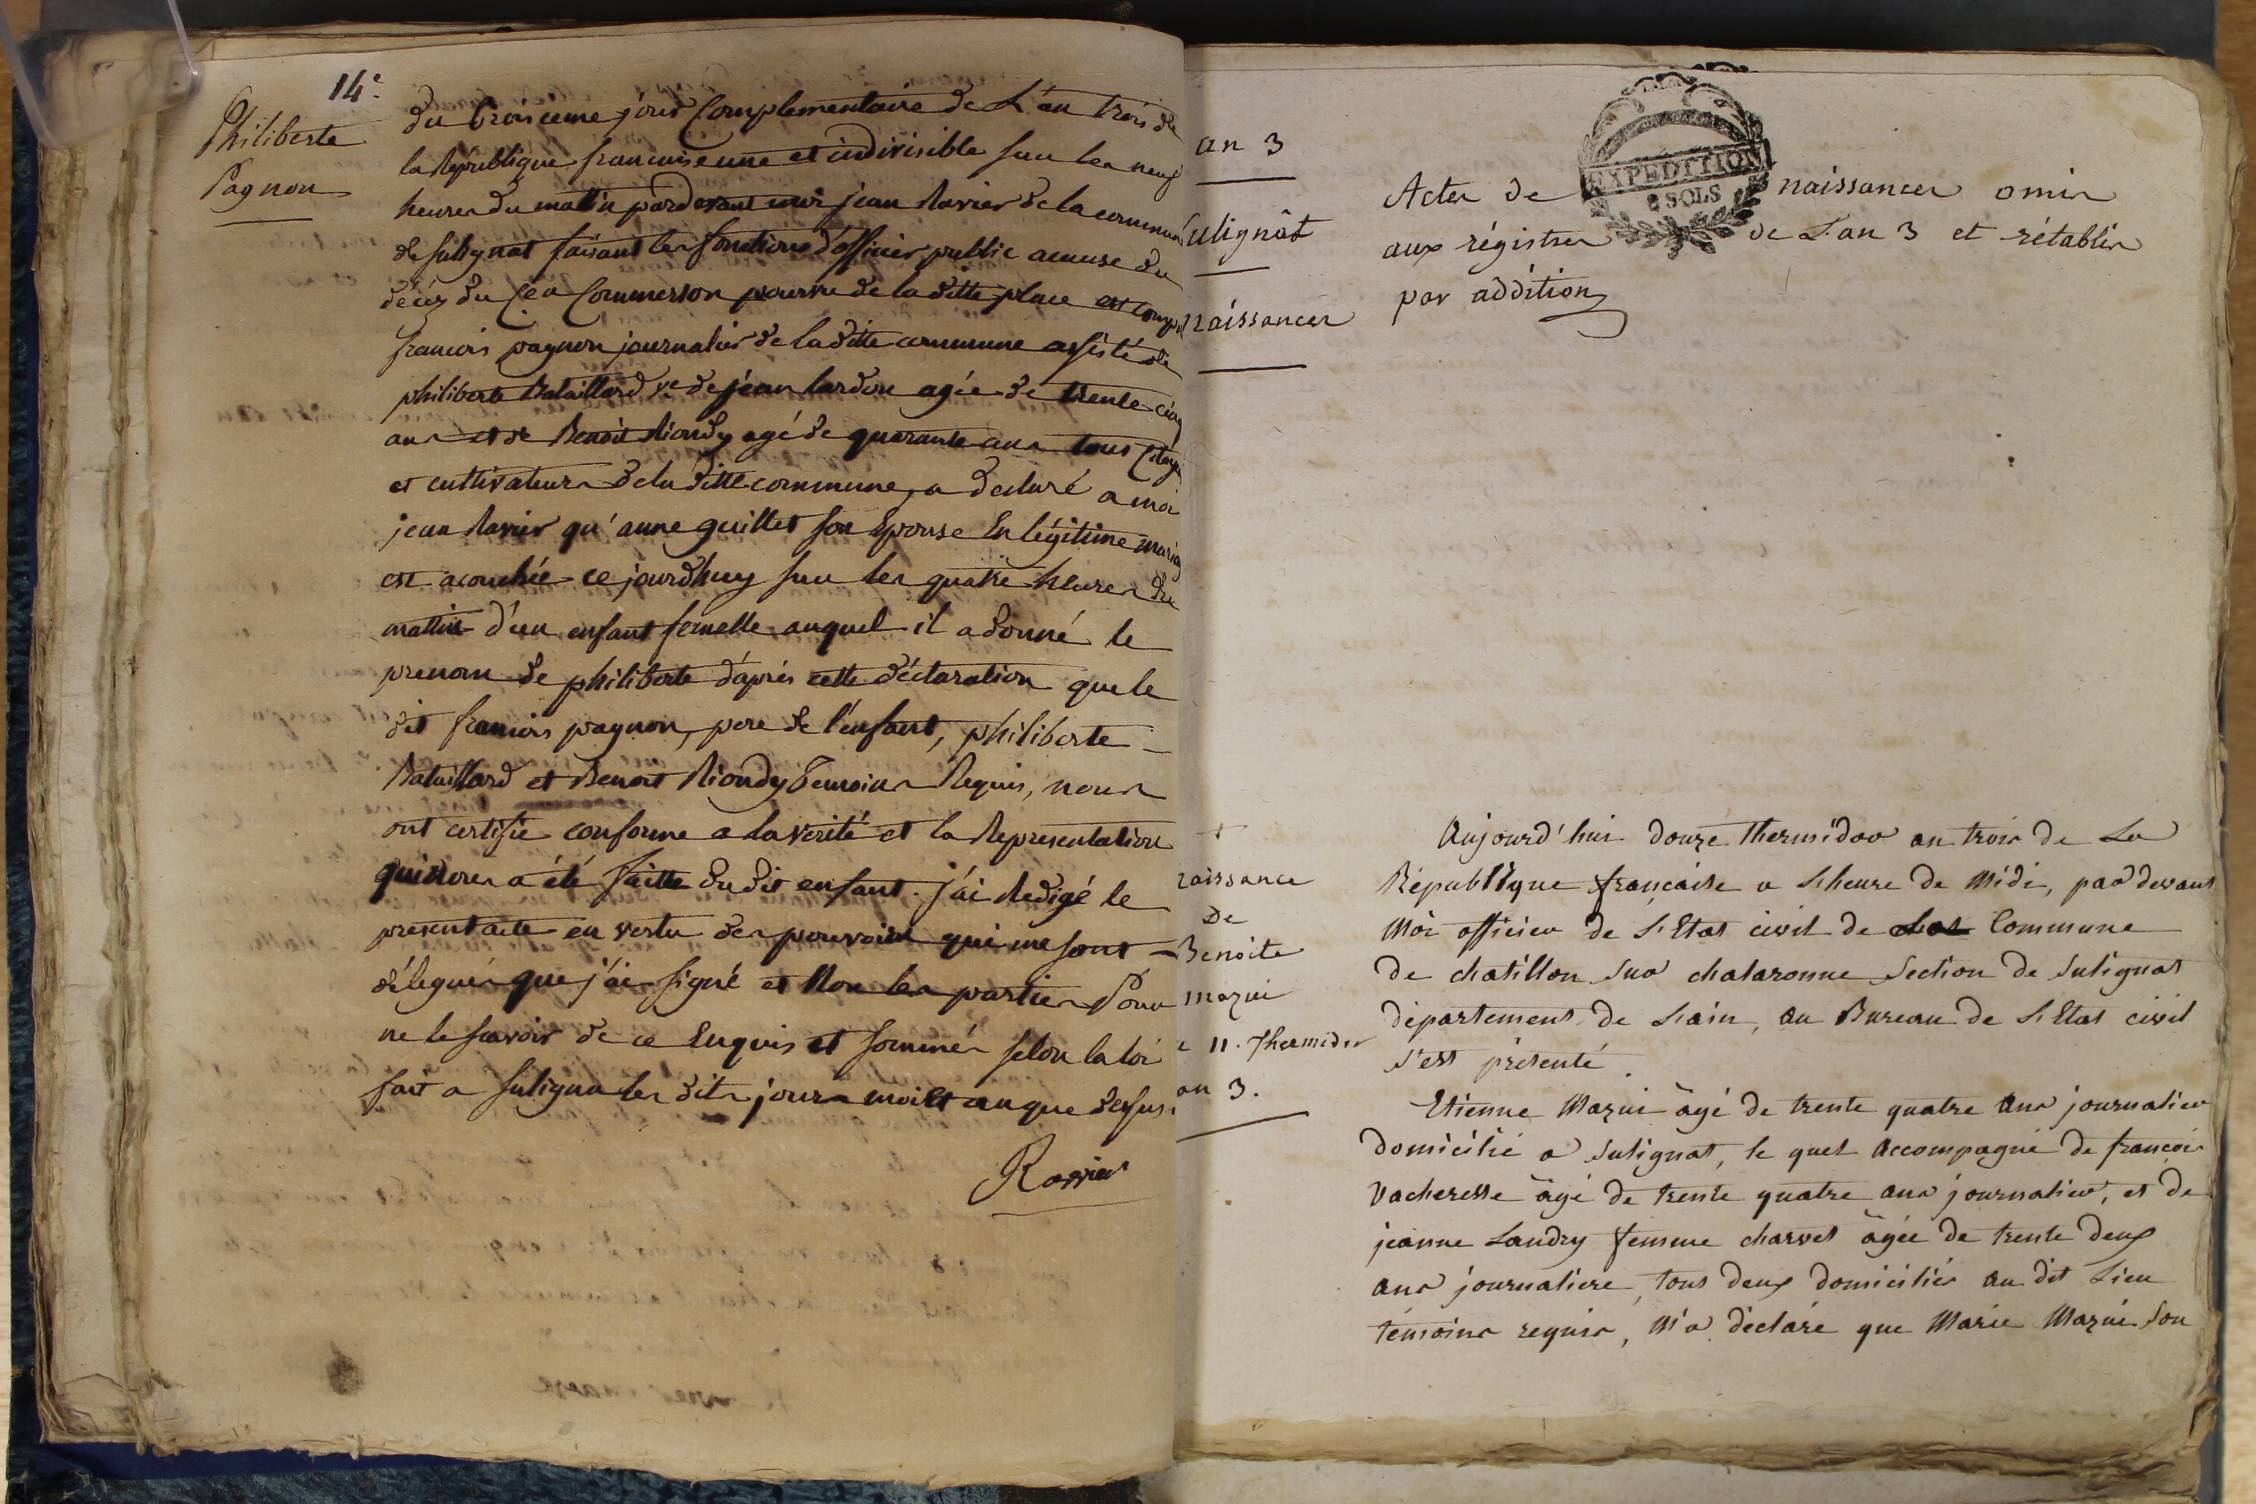 14e
Philiberte
Pagnon
du troisieme jour Complementaire de L'an trois de
la République francaise une et indivisible sur les neuf
heures du matin pardevant moi jean Ravier de la commune
de sulignat faisant les fonctions d'officier public acause du
décéz du Cen Commerson pourvu de la ditte place est comparu
francois pagnon journalier de la ditte commune assisté de
philiberte Bataillard ve de jean lardon agée de trente cinq
ans et de Benoit Riondy agé de quarante ans tous Citoyens
et cultivateurs de la ditte commune, a declaré a moi
jean Ravier qu'anne guillet son Epouse En légitime mariage
est acouchée ce jourdhuy sur les quatre heures du
mattin d'un enfant femelle auquel il a donné le
prenom de philiberte d'aprés cette déclaration que le
dit francois pagnon, pere de l'enfant, philiberte
Bataillard et Benoit Riondy Temoins Requis, nous
ont certifie conforme a la verité et la Representation
qui nous a été faitte du dit enfant. j'ai Redigé le
present acte en vertu des pouvoirs qui me sont
délegués que j'ai signé et Non les parties Pour
ne le scavoir de ce Enquis et sommés selon la loi
fait a suligna les dits jours mois et an que dessus.
Ravier
an 3
Sulignât
naissances
Actes de naissances omis
aux régistres de L'an 3 et rétablis
par addition
EXPEDITION
6 SOLS
+
naissance
De
Benoite
mazui
11. Thermidor
an 3.
Aujourd'hui douze thermidor an trois de La
République française a L'heure de Midi, pardevant
Moi officier de L'Etat civil de La Commune
de chatillon sur chalaronne Section de sulignat
département de L'ain, au Bureau de L'Etat civil
s'est présenté.
Etienne Mazui âgé de trente quatre ans journalier
domicilié a sulignat, le quel Accompagné de francois
Vacheresse âgé de trente quatre ans journalier, et de
jeanne Landry femme charvet âgée de trente deux
ans journaliere, tous deux domiciliés au dit Lieu
témoins requis, M'a déclaré que Marie Mazui Son